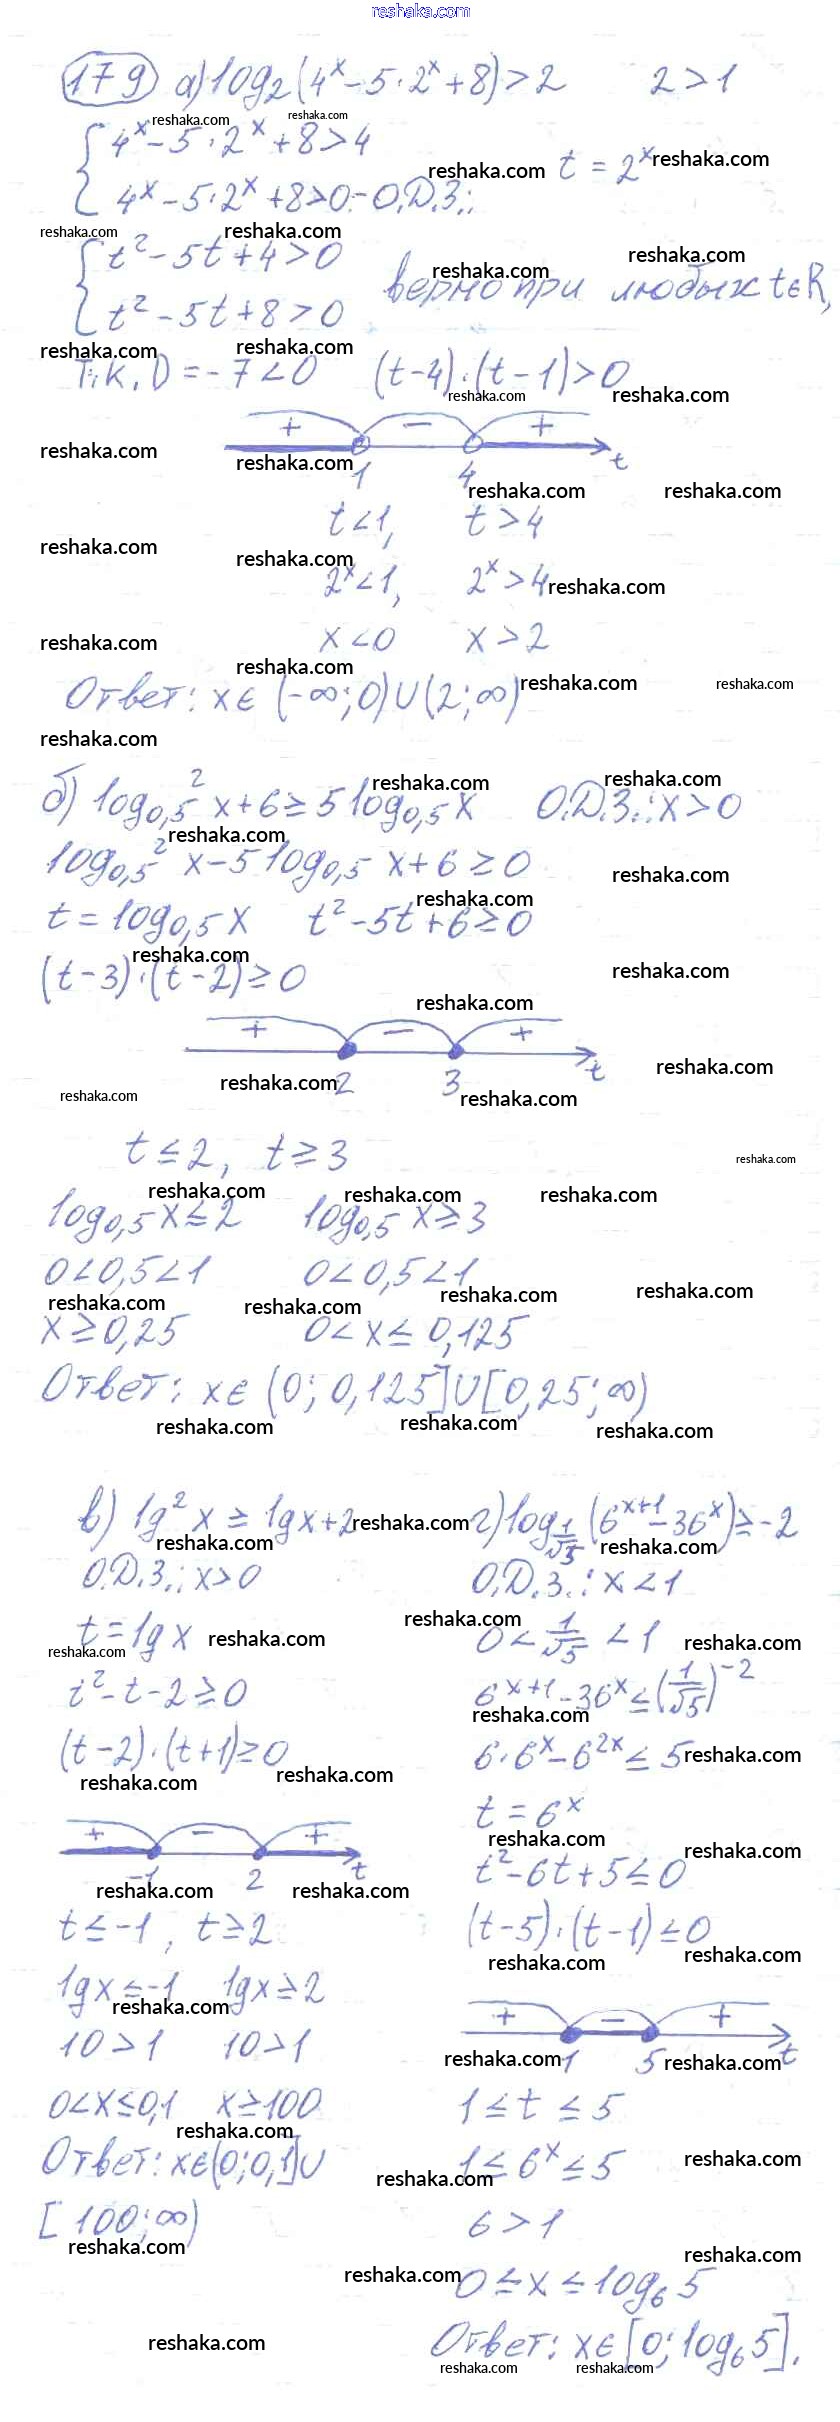 reshaka.com
179 а) log₂(4ˣ – 5·2ˣ + 8) > 2   2 > 1
{ 4ˣ – 5·2ˣ + 8 > 4
t = 2ˣ
4ˣ – 5·2ˣ + 8 > 0 – О.Д.З.:
{ t² – 5t + 4 > 0
верно при любых t ∈ R,
t² – 5t + 8 > 0
т.к. D = –7 < 0   (t – 4)·(t – 1) > 0
+ – +
1 4 t
t < 1,   t > 4
2ˣ < 1,   2ˣ > 4
x < 0   x > 2
Ответ: x ∈ (–∞; 0) ∪ (2; ∞)
б) log₀,₅² x + 6 ≥ 5 log₀,₅ x   О.Д.З.: x > 0
log₀,₅² x – 5 log₀,₅ x + 6 ≥ 0
t = log₀,₅ x   t² – 5t + 6 ≥ 0
(t – 3)·(t – 2) ≥ 0
+ – +
2 3 t
t ≤ 2,   t ≥ 3
log₀,₅ x ≤ 2   log₀,₅ x ≥ 3
0 < 0,5 < 1   0 < 0,5 < 1
x ≥ 0,25   0 < x ≤ 0,125
Ответ: x ∈ (0; 0,125] ∪ [0,25; ∞)
в) lg² x ≥ lg x + 2
О.Д.З.: x > 0
t = lg x
t² – t – 2 ≥ 0
(t – 2)·(t + 1) ≥ 0
+ – +
–1 2 t
t ≤ –1,   t ≥ 2
lg x ≤ –1   lg x ≥ 2
10 > 1   10 > 1
0 < x ≤ 0,1   x ≥ 100
Ответ: x ∈ (0; 0,1] ∪
[100; ∞)
г) log 1/√5 (6ˣ⁺¹ – 36ˣ) ≥ –2
О.Д.З.: x < 1
0 < 1/√5 < 1
6ˣ⁺¹ – 36ˣ ≤ (1/√5)⁻²
6·6ˣ – 6²ˣ ≤ 5
t = 6ˣ
t² – 6t + 5 ≤ 0
(t – 5)·(t – 1) ≤ 0
+ – +
1 5 t
1 ≤ t ≤ 5
1 ≤ 6ˣ ≤ 5
6 > 1
0 ≤ x ≤ log₆ 5
Ответ: x ∈ [0; log₆ 5].